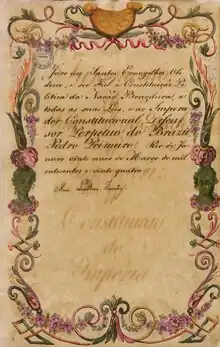 Juro aos Santos Evangelhos Obe
decer, e ser Fiel á Constituição Po
litica da Nação Brazileira, a
todas as suas Leis, e ao Impera
dor Constitucional, Defen
sor Perpetuo do Brazil
Pedro Primeiro. Rio de Ja
neiro vinte annos de Março de mil
oitocentos e vinte quatro
Constituição
do
Imperio